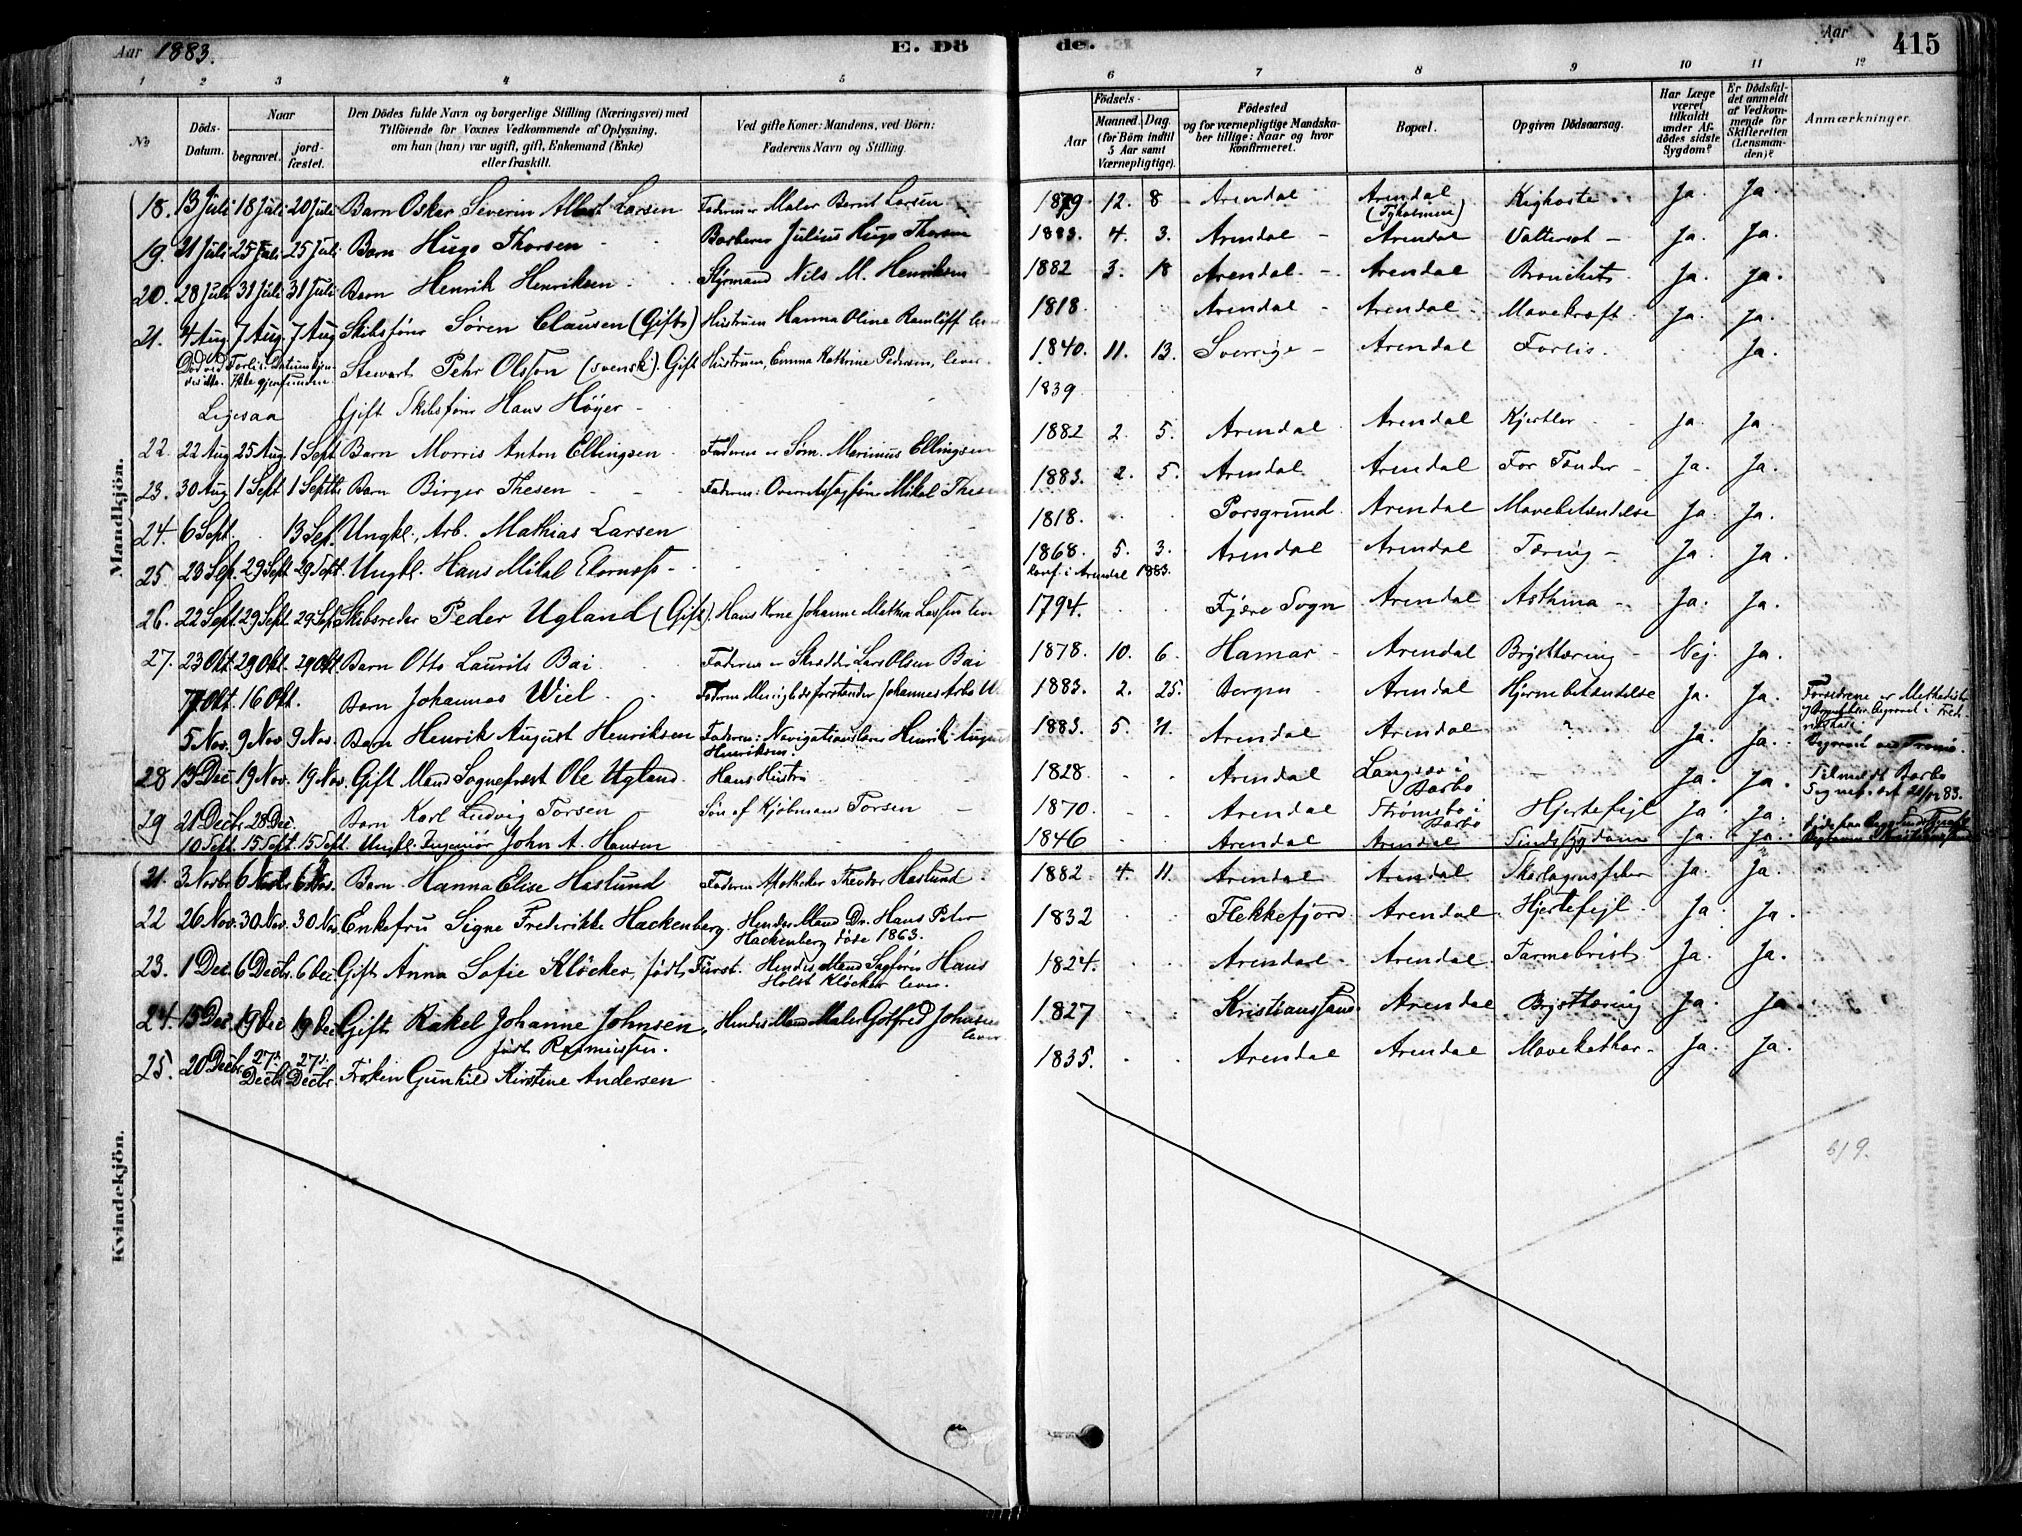 Aar 1883. E. Dö de. Aar 415
1 2 3 4 5 6 7 8 9 10 11 12
No Döds-Datum. Naar begravet. jord-fæstet. Den Dödes fulde Navn og borgerlige Stilling (Næringsvei) med Tilföiende for Voxnes Vedkommende af Oplysning. om han (hun) var ugift, gift, Enkemand (Enke) eller fraskilt. Ved gifte Koner: Mandens, ved Börn: Faderens Navn og Stilling. Födsels- Aar Maaned. Dag. (for Börn indtil 5 Aar samt Værnepligtige). Födested og for værnepligtige Mandskaber tillige: Naar og hvor konfirmeret. Bopæl. Opgiven Dödsaarsag. Har Læge været tilkaldt under Afdødes sidste Sygdom? Er Dödsfaldet anmeldt af Vedkommende for Skifteretten (Lensmanden)? Anmærkninger.
Mandkjön.
18. 13 Juli 18 Juli 20 Juli Barn Oskar Severin Albert Larsen Faderen er Maler Bernt Larsen 1879 12. 8 Arendal Arendal (Tyholmen) Kighoste Ja. Ja.
19. 21 Juli 25 Juli 25 Juli Barn Hugo Thorsen Barberer Julius Hugo Thorsen 1883. 4. 3. Arendal Arendal Vattersot Ja. Ja.
20. 28 Juli 31 Juli 31 Juli Barn Henrik Henriksen Styrmand Nils M. Henriksen 1882 3. 18 Arendal Arendal Bronchit Ja. Ja.
21. 4 Aug 7 Aug 7 Aug Skibsfører Sören Clausen (Gift) Hustruen Hanna Oline 1818. Arendal Arendal Mavekræft Ja. Ja.
Død ved Forlis. Datum kjendes ikke. Ikke gjenfunden. Stewart Pehr Olsson (svensk). Gift Hustruen, Emma Kathrine Pedersen, lever 1840. 11. 13. Sverrige Arendal Forlis. Ja.
Ligesaa Gift Skibsfører Hans Höyer 1839
22. 22 Aug 25 Aug. 1 Sept Barn Morris Anton Ellingsen Faderen er Søm. Merinius Ellingsen 1882 2. 5. Arendal Arendal Kjertler Ja. Ja.
23. 30 Aug 1 Sept 1 Septb. Barn Birger Thesen Faderen: Overretssagfører Mikal Thesen 1883. 2. 5. Arendal Arendal For Tænder Ja. Ja.
24. 6 Sept. 13 Sep. Ungkl., Arb. Mathias Larsen 1818. Porsgrund Arendal Mavebetændelse Ja. Ja.
25 23 Sep. 29 Sept. 29 Sept. Ungkl. Hans Mikal 1868. 5. 3. Konf. i Arendal 1883. Arendal Arendal Tæring Ja. Ja.
26. 22 Sept 29 Sept. 29 Sept Skibsreder Peder Ugland (Gift). Hans Kone Johanne Mathea 1794. Fjære Sogn Arendal Asthma Ja. Ja.
27. 23 Okt. 29 Okt. 29 Okt. Barn Otto Laurits Bai Faderen er Skrædder Lars Olsen Bai 1878. 10. 6. Hamar Arendal Brysttæring Nej. Ja.
7 Okt. 16 Okt. Barn Johannes Wiel Faderen Menighedsforstander Johannes 1883. 2. 25. Bergen Arendal Hjernebetændelse Ja. Ja. Forældrene er Methodist
5 Nov. 9 Nov 9 Nov. Barn Henrik August Henriksen Faderen: Navigationslærer Henrik August Henriksen 1883. 5. 21. Arendal Arendal ? Ja. Ja. Begravet paa Tromø.
28 13 Dec 19 Nov. 19 Nov. Gift Mand Sogneprest Ole Ugland Hans Hustru 1828 Arendal Langsæ i Barbo Ja. Ja. Tilmeldt Barbo Sognep. den 21/12 83.
29 21 Decbr 28 Dec. Barn Karl Ludvig Torsen Søn af Kjøbmand Torsen 1870. Arendal Strømsbo i Barbo Hjertefejl Ja. Ja.
10 Sept. 15 Sept. 15 Sept. Ungkl. Ingeniör John A. Hansen 1846 Arendal Arendal Sindssygdom Ja. Ja.
Kvindekjön.
21. 3 Novbr 6 Novbr 6 Nov. Barn Hanna Elise Haslund Faderen Apotheker Theodor Haslund 1882. 4. 11. Arendal Arendal Skarlagensfeber Ja. Ja.
22 26 Nov. 30 Nov. 30 Nov. Enkefru Signe Frederikke Hackenberg. Hendes Mand Dr. Hans Peter Hackenberg døde 1863. 1832 Flekkefjord Arendal Hjertefejl Ja. Ja.
23. 1 Dec. 6 Decb. 6 Dec Gift Anna Sofie Klöcker, født Fürst. Hendes Mand Sagfører Hans Holst Klöcker lever. 1824. Arendal Arendal Tarmebrist Ja. Ja.
24. 15 Dec 19 Dec 19 Dec Gift Rakel Johanne Johnsen, født Rasmussen. Hendes Mand Maler Gotfred Johnsen lever 1827 Kristianssand Arendal Brysttæring Ja. Ja.
25. 20 Decbr 27de Decbr 27de Decbr. Frøken Gunhild Kirstine Andersen 1835. Arendal Arendal Mavekathar Ja. Ja.